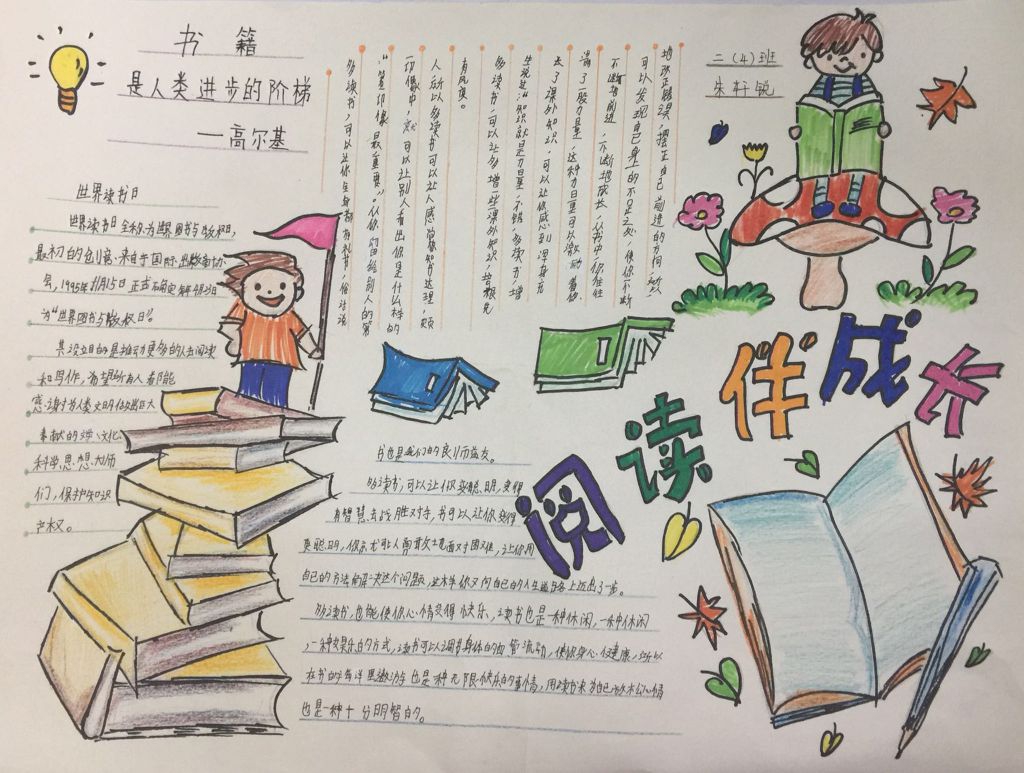 书 籍
是人类进步的阶梯
——高尔基
二(4)班
朱轩锐
世界读书日
世界读书日全称为世界图书与版权日,
最初的创意来自于国际出版商协
会,1995年11月15日正式确定每年4月23日
为“世界图书与版权日”。
其设立目的是推动更多的人去阅读
和写作,希望所有人都能
感谢对人类文明做出巨大
贡献的文学、文化、
科学思想大师
们,保护知识
产权。
多读书,可以让你全身都有礼貌,俗话说
“第一印像最重要。”从你留给别人的第
一印像中,就可以让别人看出你是什么样的
人所以多读书可以让人感觉你知书达理,颇
有风度。
多读书,可以让你多增一些课外知识,培根先
生说过:“知识就是力量”不错,多读书,增
长了课外知识,可以让你感到浑身充
满了一股力量,这种力量可以激励着你
不断地前进,不断地成长,从书中,你往往
可以发现自己身上的不足之处,使你不断
地改正错误,摆正自己前进的方向,所以
书也是我们的良师益友。
多读书,可以让你变聪明,变得
有智慧去战胜对手,书可以让你变得
更聪明,你就可以勇敢地面对困难,让你用
自己的方法来解决这个问题,这样你又向自己的人生道路上迈出了一步。
多读书,也能使你心情变得快乐,读书也是一种休闲,一种休闲
,一种娱乐的方式,读书可以调节身体的血管流动,使你身心健康,所以
在书的海洋里遨游也是一种无限快乐的事情,用读书来为自己放松心情
也是一种十分明智的。
阅读伴成长